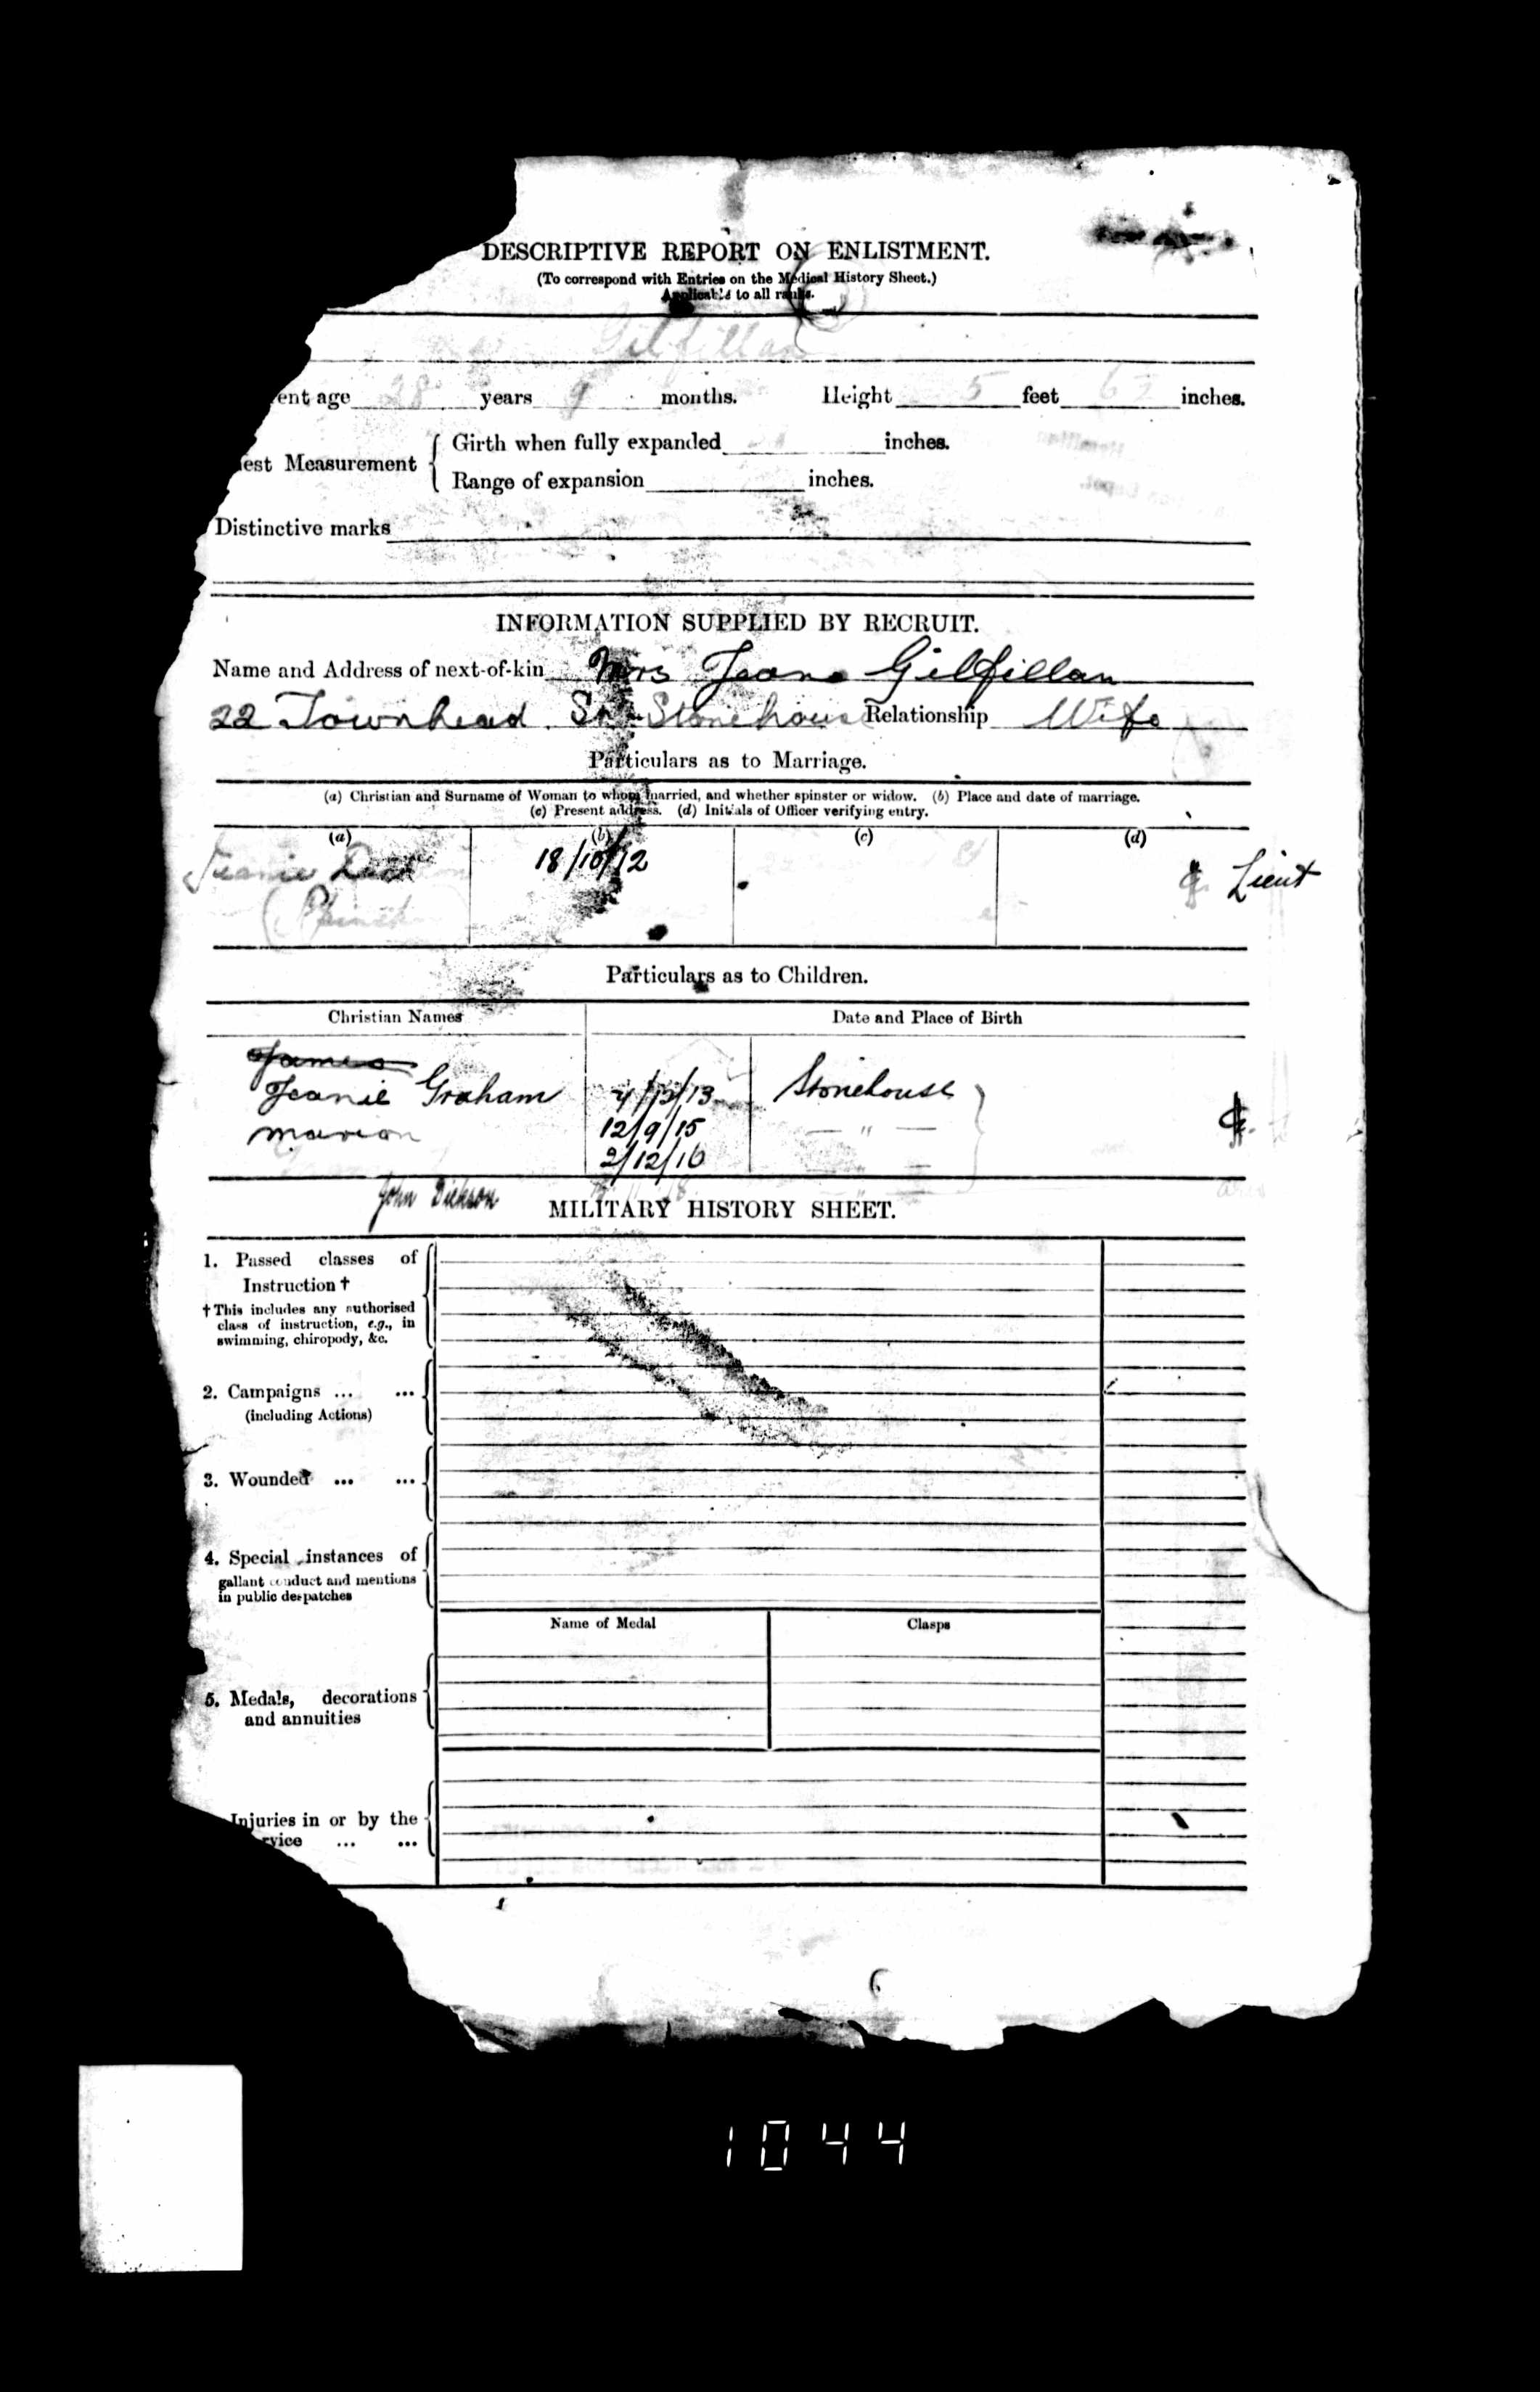 DESCRIPTIVE REPORT ON ENLISTMENT.
(To correspond with Entries on the Medical History Sheet.)
Applicable to all ranks.
Gilfillan
ent age 28 years 9 months. Height 5 feet 6 inches.
est Measurement { Girth when fully expanded inches.
Range of expansion inches.
Distinctive marks
INFORMATION SUPPLIED BY RECRUIT.
Name and Address of next-of-kin Mrs Jeane Gilfillan
22 Townhead St Stonehouse Relationship Wife
Particulars as to Marriage.
(a) Christian and Surname of Woman to whom married, and whether spinster or widow. (b) Place and date of marriage.
(c) Present address. (d) Initials of Officer verifying entry.
(a) (b) (c) (d)
Jeanie 18/10/12 Lieut
Particulars as to Children.
Christian Names Date and Place of Birth
James
Jeanie Graham 4/12/13 Stonehouse
Marion 12/9/15 — " —
2/12/16
John Dickson
MILITARY HISTORY SHEET.
1. Passed classes of
Instruction †
† This includes any authorised
class of instruction, e.g., in
swimming, chiropody, &c.
2. Campaigns ... ...
(including Actions)
3. Wounded ... ...
4. Special instances of
gallant conduct and mentions
in public despatches
Name of Medal Clasps
5. Medals, decorations
and annuities
Injuries in or by the
rvice ... ...
6
1044